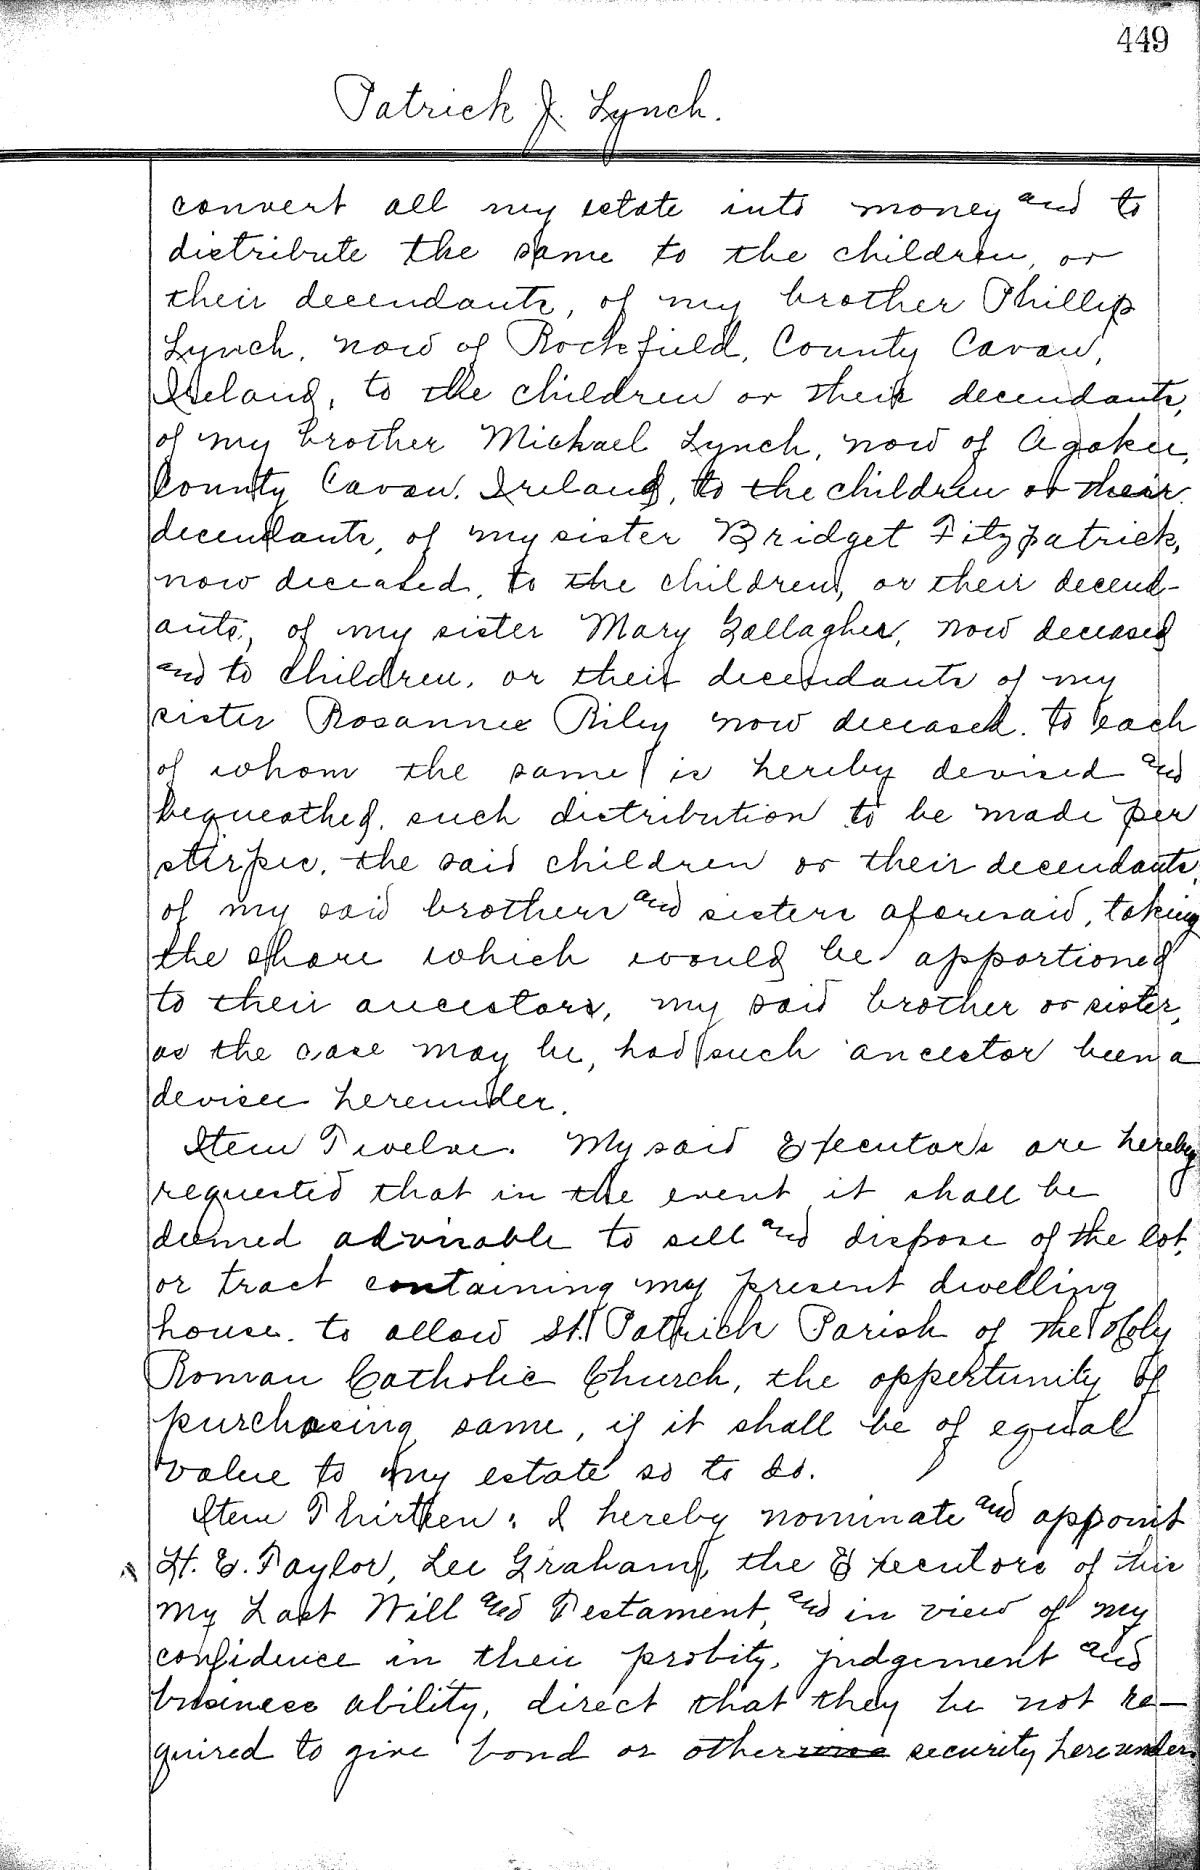 449
Patrick J. Lynch.
convert all my estate into money and to
distribute the same to the children, or
their decendants, of my brother Phillip
Lynch, now of Rockfield, County Cavan,
Ireland, to the children or their decendants,
of my brother Michael Lynch, now of
County Cavan, Ireland, to the children or their
decendants, of my sister Bridget Fitzpatrick,
now deceased, to the children, or their decend-
ants, of my sister Mary Gallagher, now deceased
and to children, or their decendants of my
sister Rosannee Riley now deceased. to each
of whom the same is hereby devised and
bequeathed, such distribution to be made per
stirpes, the said children or their decendants,
of my said brothers and sisters aforesaid, taking
the share which would be apportioned
to their ancestors, my said brother or sister,
as the case may be, had such ancestor been a
devisee hereunder.
Item Twelve. My said Executors are hereby
requested that in the event it shall be
deemed advisable to sell and dispose of the lot,
or tract containing my present dwelling
house, to allow St. Patrick Parish of the Holy
Roman Catholic Church, the oppertunity of
purchasing same, if it shall be of equal
value to my estate so to do.
Item Thirteen: I hereby nominate and appoint
H. E. Taylor, Lee Graham, the Executors of this
My Last Will and Testament, and in view of my
confidence in their probity, judgement and
business ability, direct that they be not re-
quired to give bond or other security hereunder.